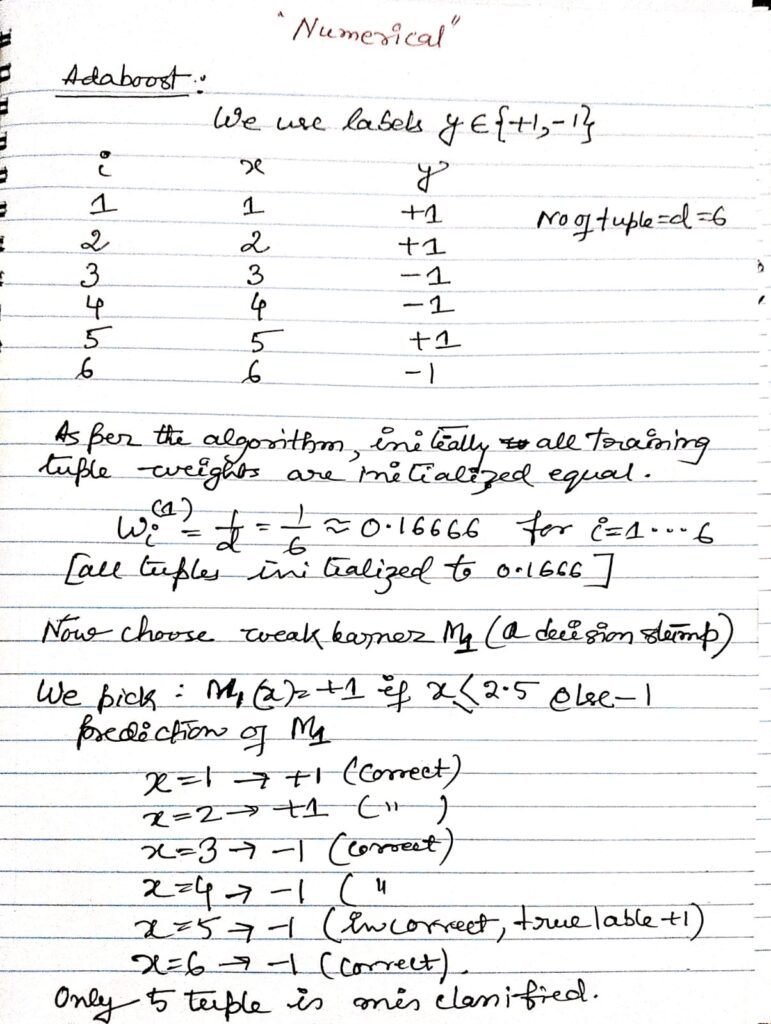 "Numerical"
Adaboost :
We use labels y ∈ {+1, -1}
i x y
1 1 +1 No of tuple = d = 6
2 2 +1
3 3 -1
4 4 -1
5 5 +1
6 6 -1
As per the algorithm, initeally all training
tuple weights are initialized equal.
Wi^(1) = 1/d = 1/6 ≈ 0.16666 for i=1 ... 6
[all tuples initialized to 0.1666]
Now choose weak learner M1 (a decision stump)
We pick : M1(x) = +1 if x ≤ 2.5 else -1
prediction of M1
x=1 → +1 (correct)
x=2 → +1 ( " )
x=3 → -1 (correct)
x=4 → -1 ( "
x=5 → -1 (incorrect, true lable +1)
x=6 → -1 (correct).
Only 5 tuple is mis classified.